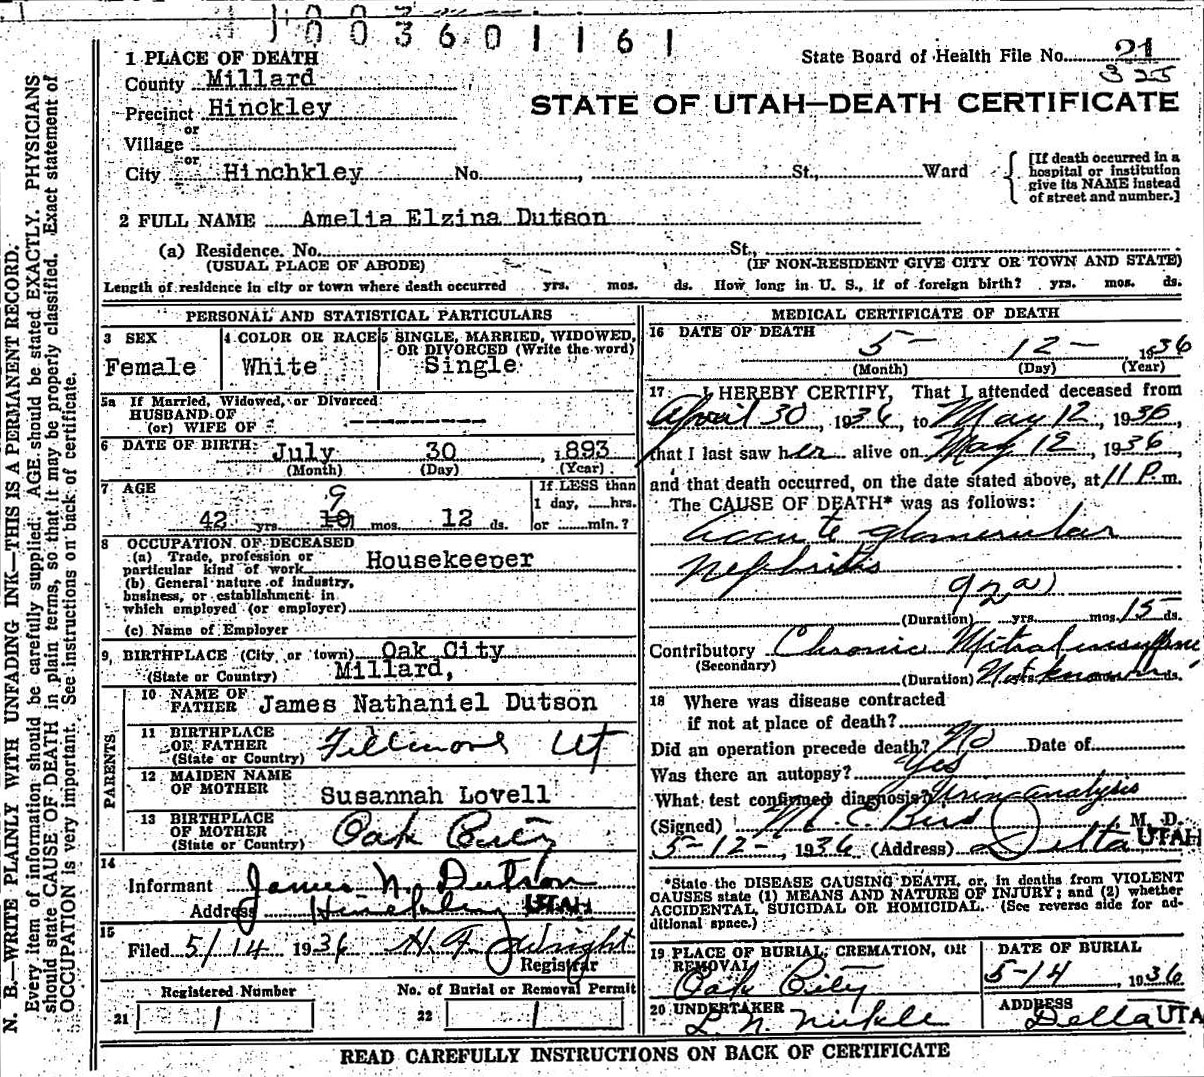 1003601161
State Board of Health File No. 21
325
1 PLACE OF DEATH
County Millard
STATE OF UTAH—DEATH CERTIFICATE
Precinct Hinckley
or
Village
or
City Hinchkley No. , St., Ward
[If death occurred in a hospital or institution give its NAME instead of street and number.]
2 FULL NAME Amelia Elzina Dutson
(a) Residence. No. St.,
(USUAL PLACE OF ABODE) (IF NON-RESIDENT GIVE CITY OR TOWN AND STATE)
Length of residence in city or town where death occurred yrs. mos. ds. How long in U. S., if of foreign birth? yrs. mos. ds.
PERSONAL AND STATISTICAL PARTICULARS
3 SEX
Female
4 COLOR OR RACE
White
5 SINGLE, MARRIED, WIDOWED, OR DIVORCED (Write the word)
Single
5a If Married, Widowed, or Divorced
HUSBAND OF
(or) WIFE OF ----------
6 DATE OF BIRTH: July 30, 1893
(Month) (Day) (Year)
7 AGE
9
42 yrs. 10 mos. 12 ds.
If LESS than
1 day, ....hrs.
or ......min.?
8 OCCUPATION OF DECEASED
(a) Trade, profession or
particular kind of work Housekeeper
(b) General nature of industry,
business, or establishment in
which employed (or employer)
(c) Name of Employer
9, BIRTHPLACE (City or town) Oak City
(State or Country) Millard,
PARENTS
10 NAME OF
FATHER James Nathaniel Dutson
11 BIRTHPLACE
OF FATHER
(State or Country) Fillmore Ut
12 MAIDEN NAME
OF MOTHER Susannah Lovell
13 BIRTHPLACE
OF MOTHER
(State or Country) Oak City
14
Informant James N. Dutson
Address Hinckley UTAH
15
Filed 5/14 1936 H. F. Wright
Registrar
Registered Number
21 1
No. of Burial or Removal Permit
22 1
MEDICAL CERTIFICATE OF DEATH
16 DATE OF DEATH
5- 12-, 1936
(Month) (Day) (Year)
17 I HEREBY CERTIFY, That I attended deceased from
April 30, 1936, to May 12, 1936,
that I last saw her alive on May 12, 1936,
and that death occurred, on the date stated above, at 11 P.m.
The CAUSE OF DEATH* was as follows:
accute glomerular
nephritis
92a)
(Duration) yrs. mos. 15 ds.
Contributory Chronic Mitral insuffienc,
(Secondary)
(Duration) Not known ds.
18 Where was disease contracted
if not at place of death?
Did an operation precede death? No Date of
Was there an autopsy? Yes
What test confirmed diagnosis? Urine analysis
(Signed) M. E. Bird, M. D.
5-12-, 1936 (Address) Delta UTAH
*State the DISEASE CAUSING DEATH, or, in deaths from VIOLENT
CAUSES state (1) MEANS AND NATURE OF INJURY; and (2) whether
ACCIDENTAL, SUICIDAL OR HOMICIDAL. (See reverse side for ad-
ditional space.)
19 PLACE OF BURIAL, CREMATION, OR
REMOVAL
Oak City
DATE OF BURIAL
5-14, 1936
20 UNDERTAKER
L. N. Nickle
ADDRESS
Delta UTA
READ CAREFULLY INSTRUCTIONS ON BACK OF CERTIFICATE
N. B.—WRITE PLAINLY WITH UNFADING INK—THIS IS A PERMANENT RECORD.
Every item of information should be carefully supplied: AGE should be stated EXACTLY. PHYSICIANS
should state CAUSE OF DEATH in plain terms, so that it may be properly classified. Exact statement of
OCCUPATION is very important. See instructions on back of certificate.